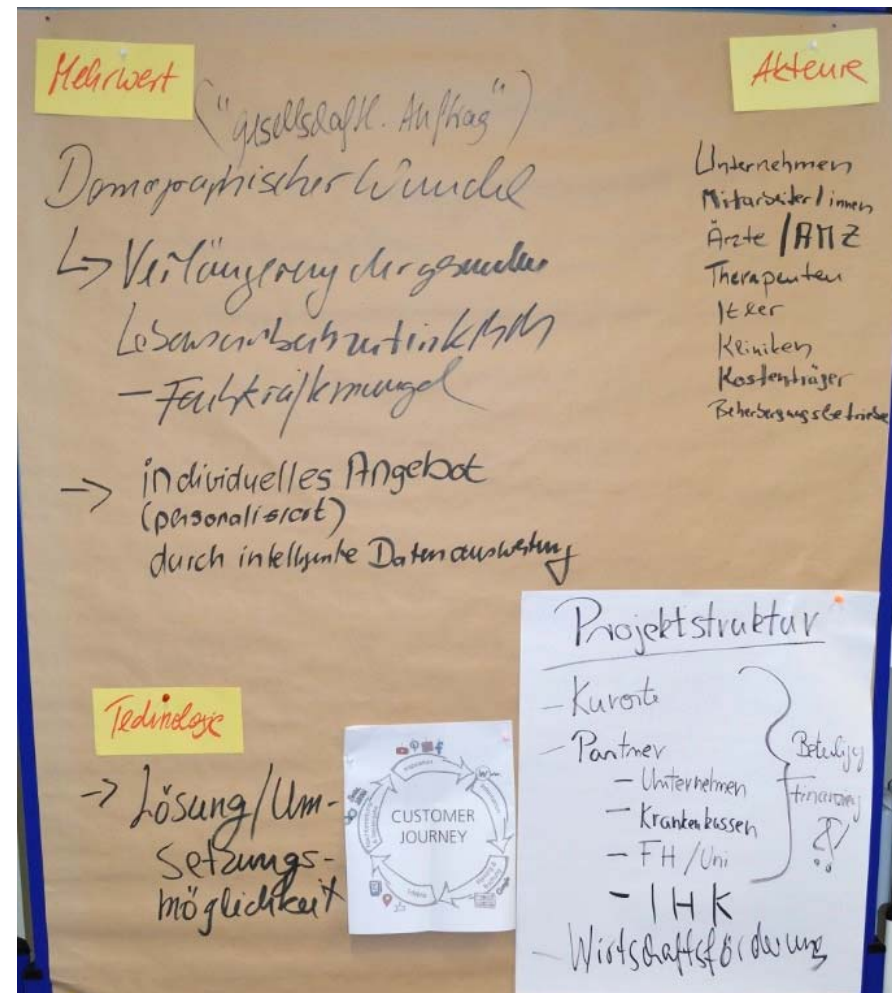 Mehrwert
("gesellschaftl. Auftrag")
Demographischer Wandel
↳ Verlängerung der gesunden
Lebensarbeitszeit
- Fachkräftemangel
→ individuelles Angebot
(personalisiert)
durch intelligente Datenauswertung
Akteure
Unternehmen
Mitarbeiter/innen
Ärzte / AMZ
Therapeuten
ITler
Kliniken
Kostenträger
Beherbergungsbetriebe
Technologie
→ Lösung/Um-
setzungs-
möglichkeit
CUSTOMER
JOURNEY
Google
Projektstruktur
- Kurorte
- Partner
- Unternehmen
- Krankenkassen
- FH/Uni
- IHK
- Wirtschaftsförderung
Beteiligg
Finanzierung